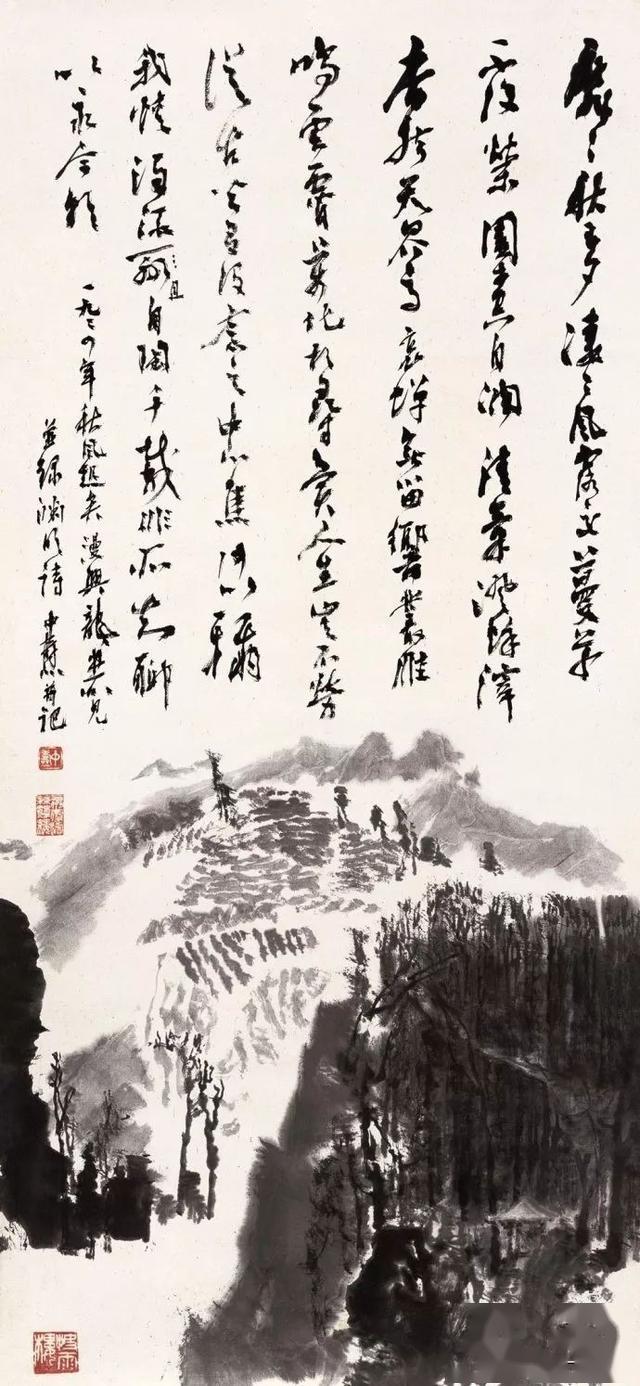 靡〻秋已夕凄〻風露交蔓草
不復榮園木空自凋清氣澄餘滓
杳然天界高哀蝉無留響叢雁
鳴雲霄萬化相尋異人生豈不勞
從古皆有没念之中心焦何以稱
我情濁酒且自陶千載非所知聊
以永今朝
年秋風起矣漫興龍井所見
並録淵明詩 中燾并記